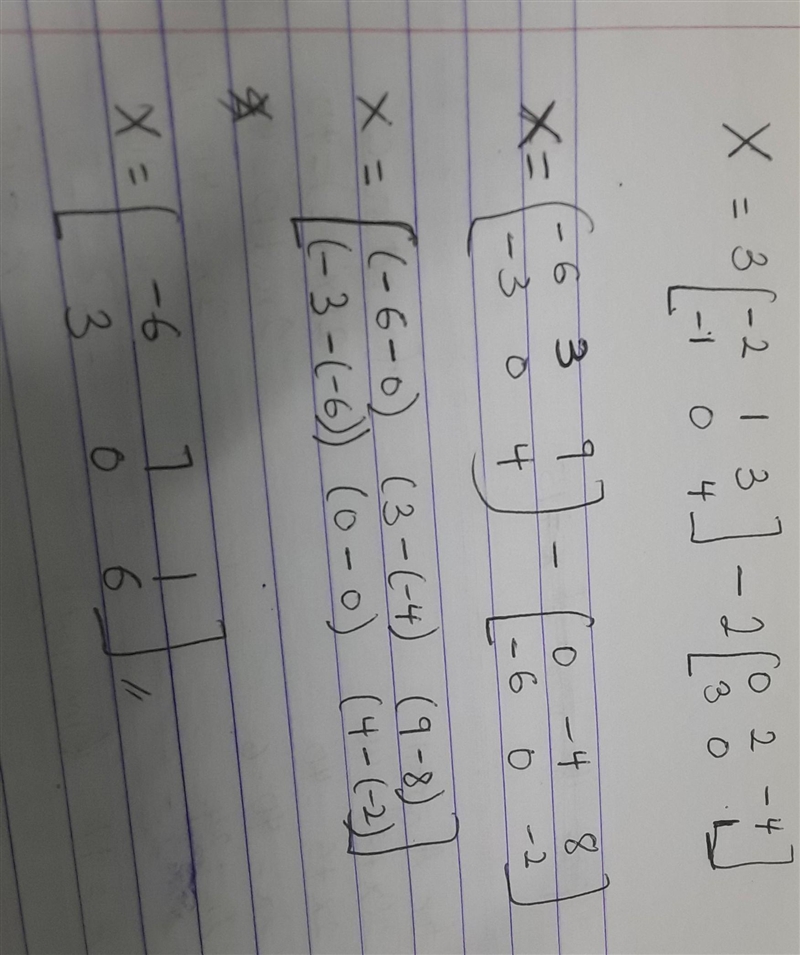 X = 3 [ -2 1 3 ] - 2 [ 0 2 -4 ]
[ -1 0 4 ] [ 3 0 1 ]
X = [ -6 3 9 ] - [ 0 -4 8 ]
[ -3 0 4 ] [ -6 0 -2 ]
X = [ (-6-0) (3-(-4) (9-8) ]
[ (-3-(-6)) (0-0) (4-(-2) ]
X = [ -6 7 1 ]
[ 3 0 6 ] //